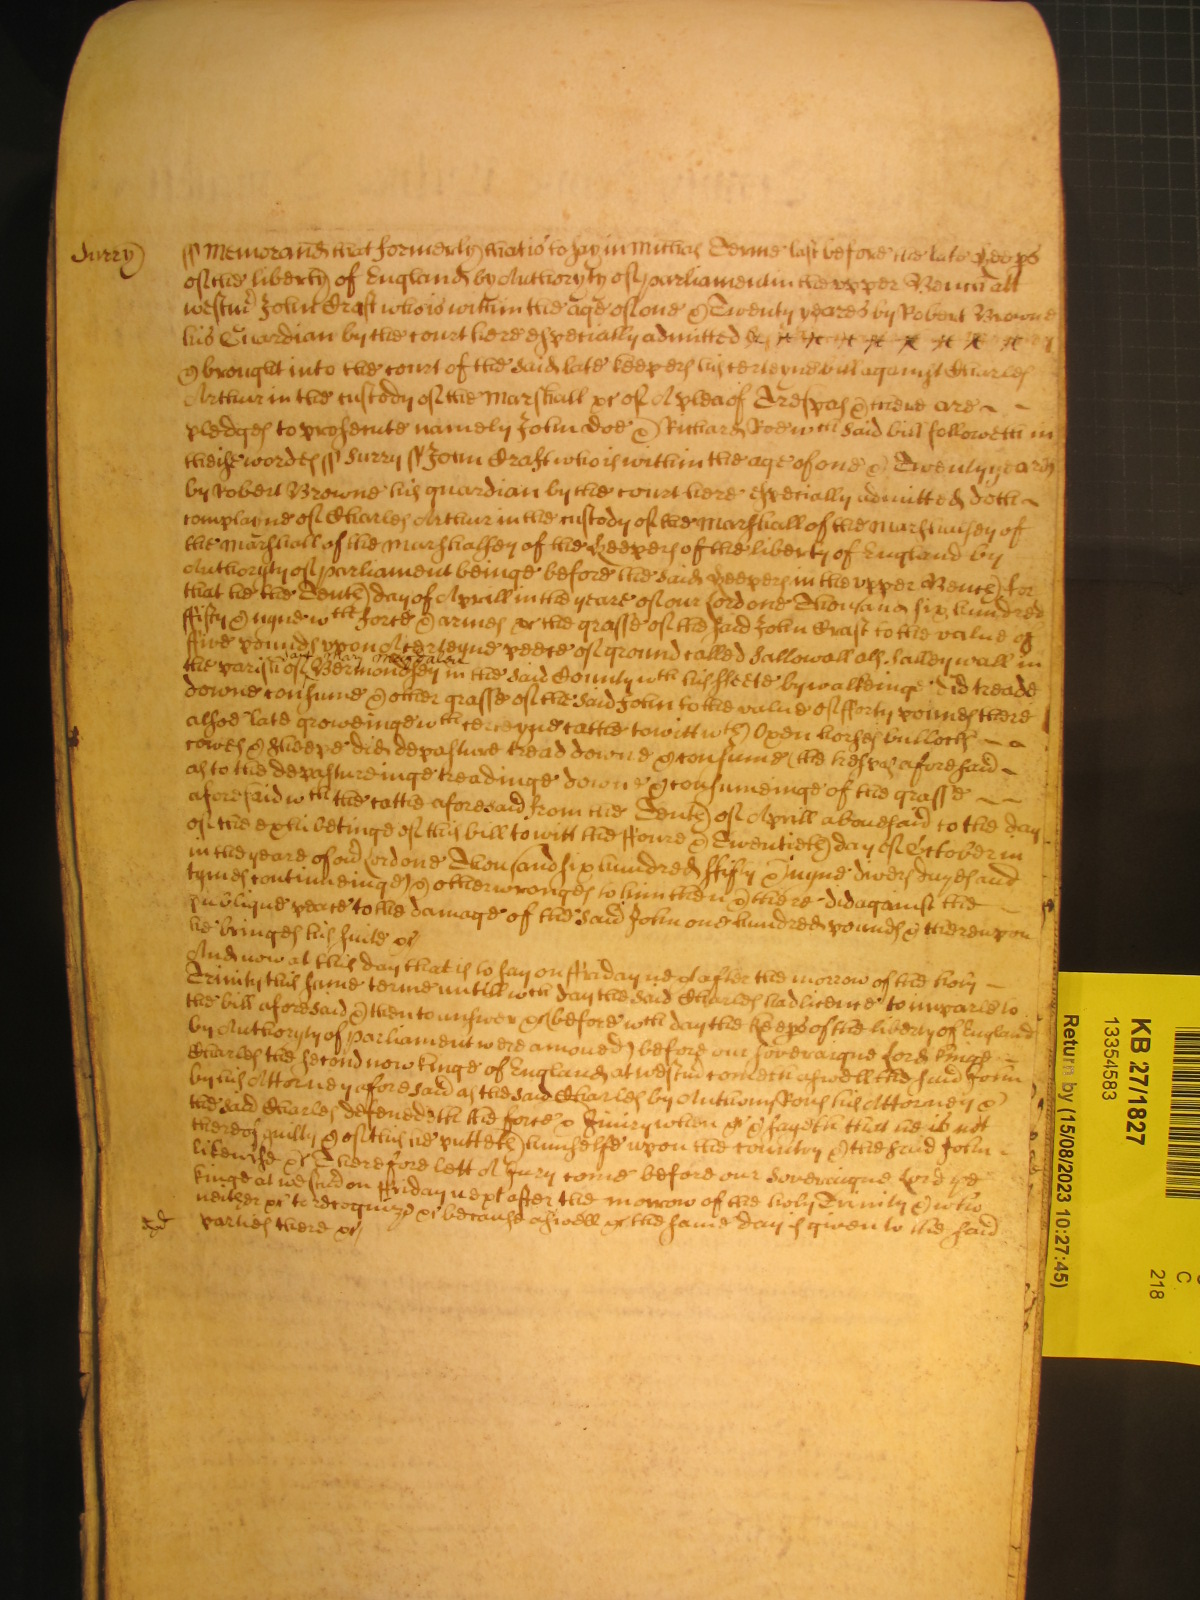 Surry
ss Memorand that formerly that is to say in Michas Terme last before the late Keeps
of the liberty of England by Authoryty of Parliament in the upper Bench att
Westmr John Crast who is within the age of one & Twenty yeares by Robert Browne
his Guardian by the court here especially admitted &
& brought into the court of the said late keepers his certeyne bill against Charles
Arthur in the custody of the Marshall &c of A plea of Trespas & there are
pledges to prosecute namely John Doe & Richard Roe wch said bill followeth in
these wordes ss Surry ss John Crast who is within the age of one & Twenty yeares
by Robert Browne his guardian by the court here especially admitted doth
complayne of Charles Arthur in the custody of the Marshall of the Marshalsey of
the Marshall of the Marshalsey of the Keepers of the liberty of England by
Authoryty of Parliament beinge before the said Keepers in the upper Bench for
that he the Tenth day of Aprill in the yeare of our Lord one Thousand six hundred
ffifty & nyne wth force & armes &c the grasse of the said John Crast to the value of
ffive pounds upon A certeyne peece of ground called Sallowall als Salleywall in
the parish of Bermondsey Magdalen in the said County wth his feete by walkeinge did treade
downe consume & other grasse of the said John to the value of fforty pounds there
alsoe late groweinge wth certeyne cattle to witt wth Oxen horses bullocks
cowes & sheepe did depasture tread downe & consume the trespas aforesaid
as to the depastureinge treadinge downe & consumeinge of the grasse
aforesaid wth the cattle aforesaid from the Tenth of Aprill abovesaid to the day
of the exhibetinge of this bill to witt the ffoure & Twentieth day of October in
in the yeare of our Lord one Thousand six hundred ffifty & nyne divers dayes and
tymes continueinge & other wronges to him then & there did against the
publique peace to the damage of the said John one hundred pounds & thereupon
he bringes his suite &c
And now at this day that is to say on ffriday next after the morrow of the holy
Trinity this same terme untill wch day the said Charles had licence to imparle to
the bill aforesaid & then to answer &c before wch day the Keeps of the liberty of England
by Authoryty of Parliament were amoved before our soveraigne Lord Kinge
Charles the second now Kinge of England at Westmr cometh aswell the said John
by his Attorney aforesaid as the said Charles by Anthony Rous his Attorney &
the said Charles defendeth the force & Iniury when &c & sayeth that he is not
thereof guilty & of this he putteth himselfe upon the country & the said John
likewise &c Therefore lett A Jury come before our soveraigne Lord ye
Kinge at Westmr on ffriday next after the morrow of the holy Trinity & who
neither &c to recognize &c because aswell &c the same day is given to the said
parties there &c
KB 27/1827
13354583
Return by (15/08/2023 10:27:45)
C
218